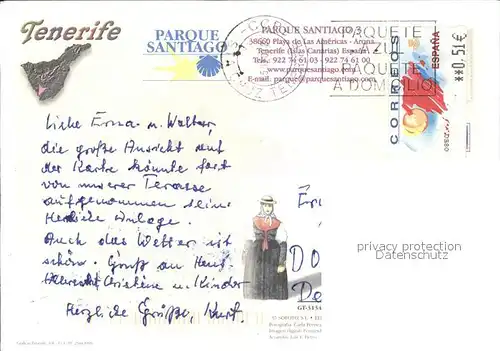 Tenerife
PARQUE
SANTIAGO
PARQUE SANTIAGO/3
38660 Playa de Las Américas - Arona
Tenerife (Islas Canarias) España
Tels.: 922 74 61 03 - 922 74 61 00
www.parquesantiago.com
E-mail: parque@parquesantiago.com
PAQUETE
AZUL
PAQUETE
A DOMICILIO
CORREOS
ESPAÑA
**0,51€
Liebe Erna u. Walter,
die große Ansicht auf
der Karte könnte fast
von unserer Terasse
aufgenommen sein.
Herrliche Anlage.
Auch das Wetter ist
schön. Gruß an Hans
Albrecht Christiene u. Kinder
Herzliche Grüße, Kurt.
privacy protection
Datenschutz
GT-3434